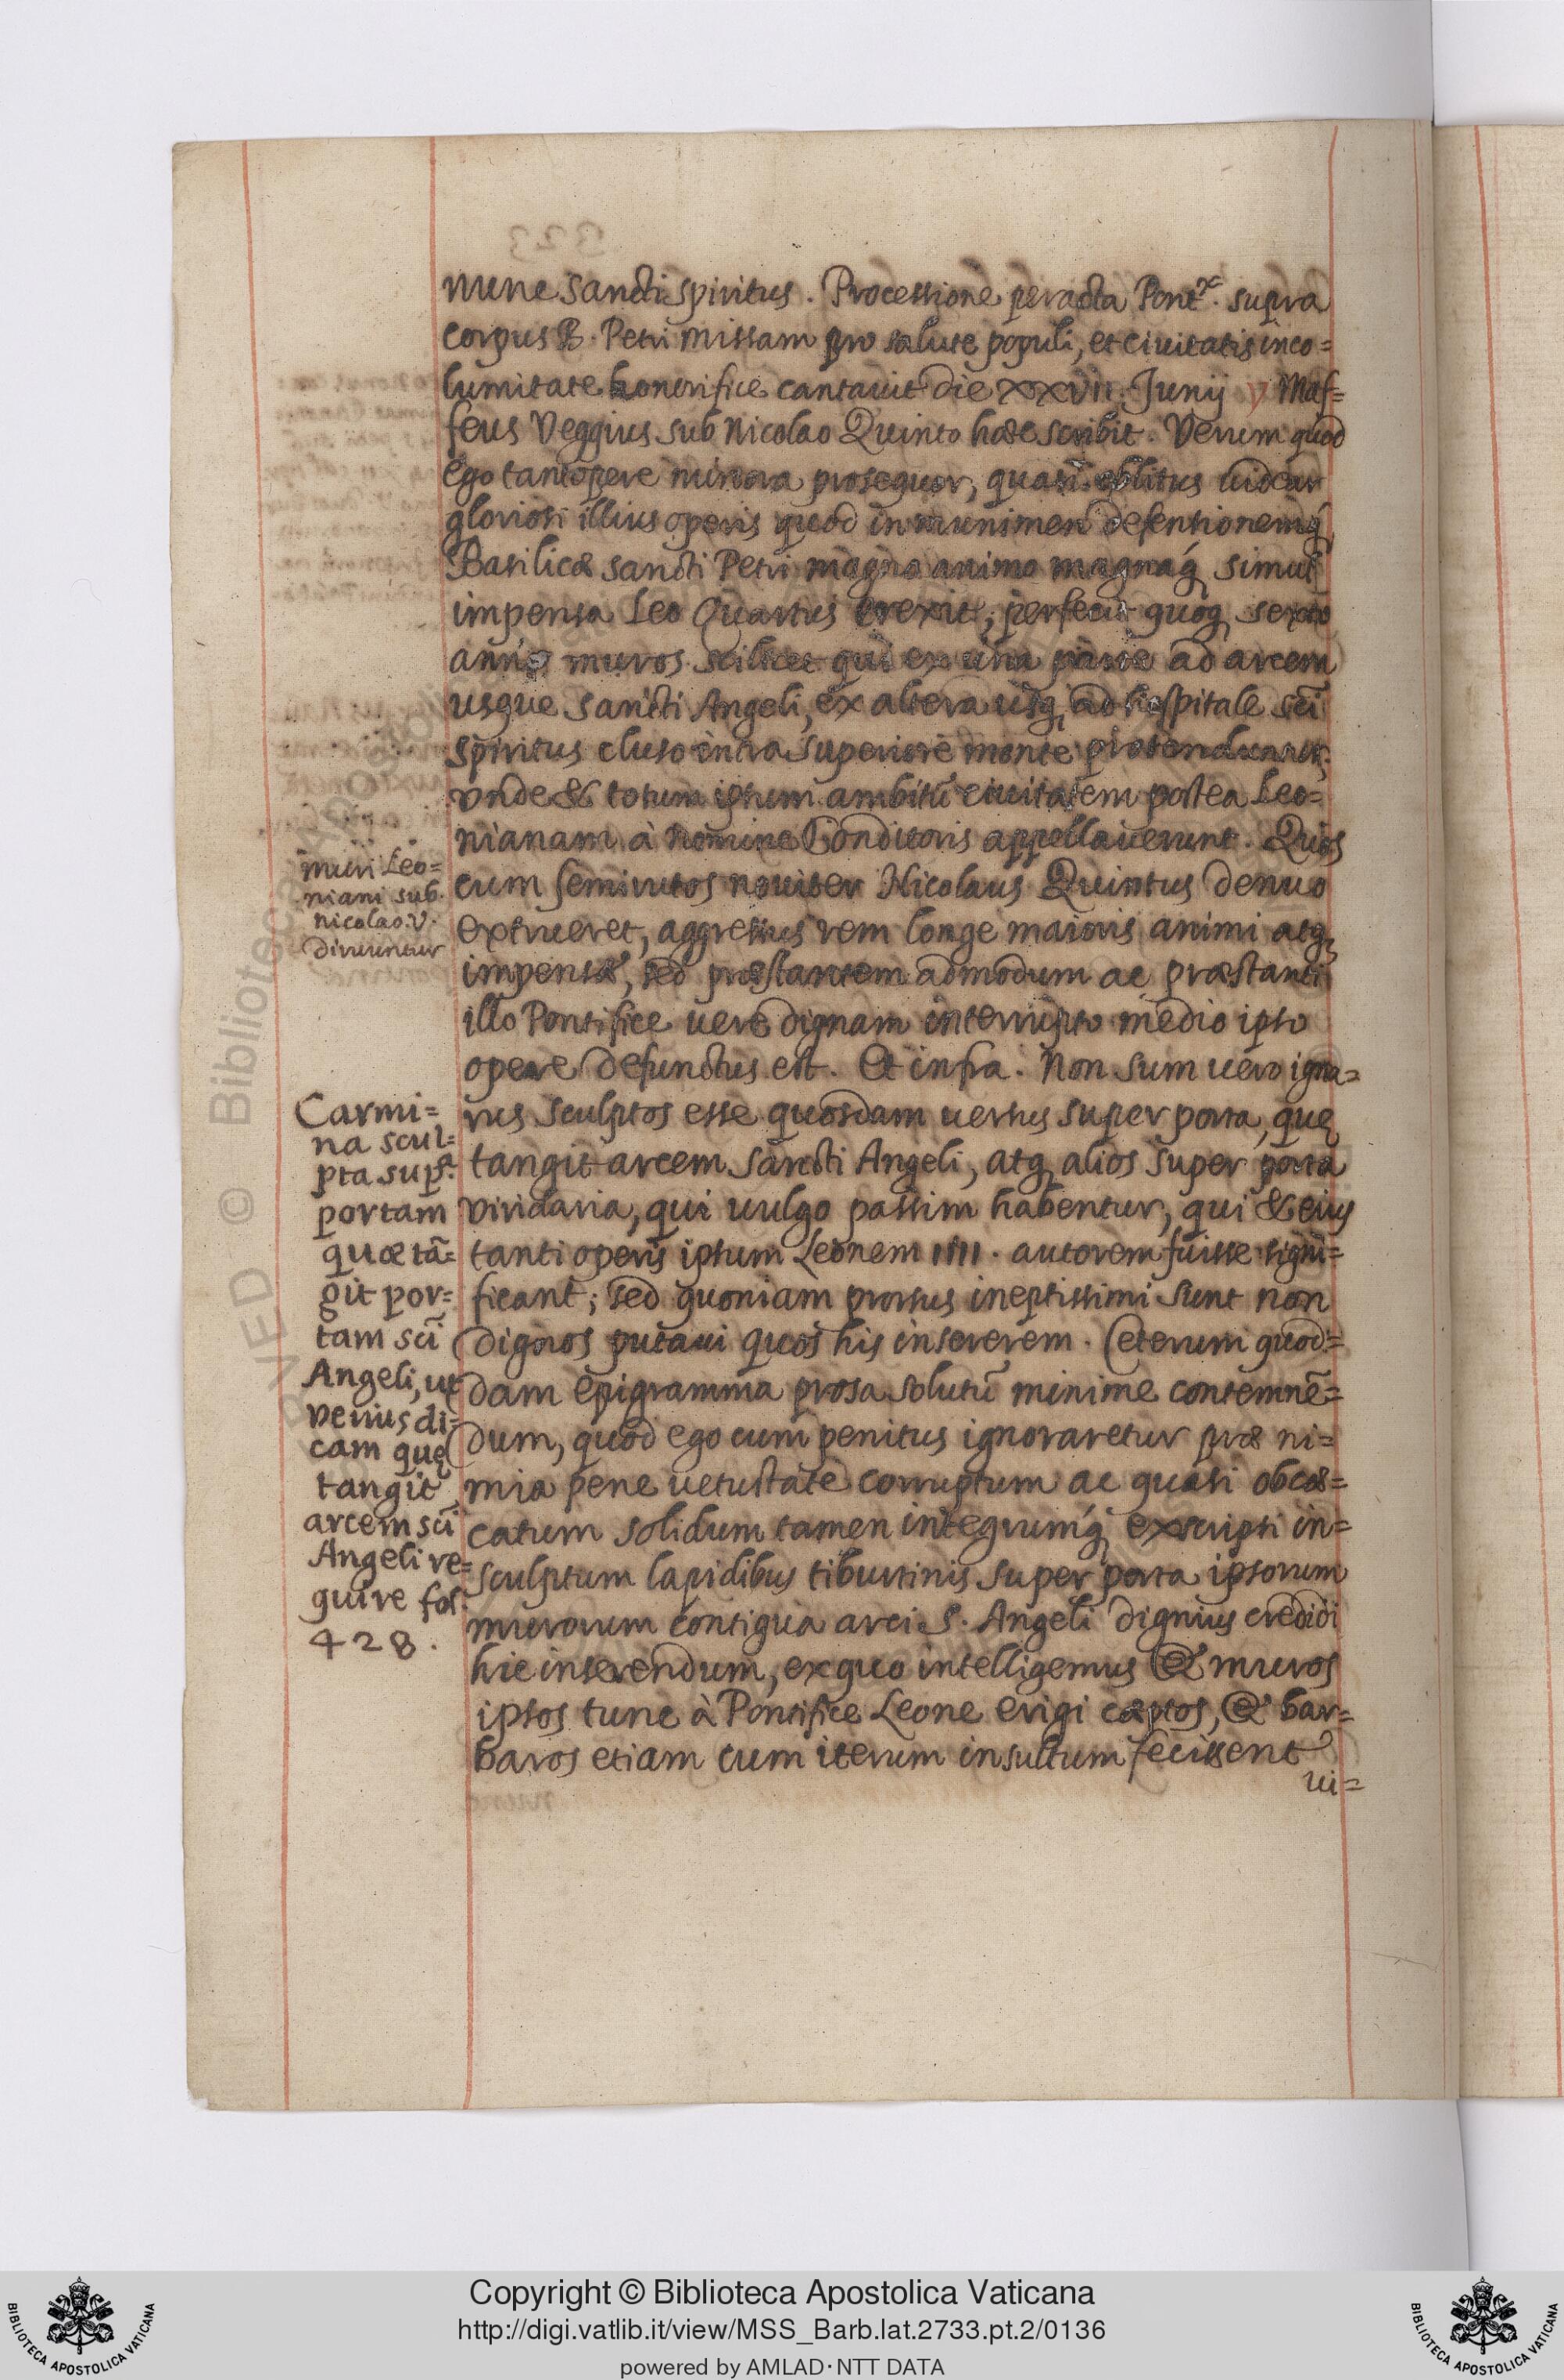 nunc Sancti Spiritus. Processione peracta Pont.ᵉˣ supra
corpus B. Petri missam pro salute populi, et ciuitatis inco=
lumitate honorifice cantauit die XXVII. Junij Maf=
feus Veggius sub Nicolao Quinto hæc scribit. Verum quod
ego tantopere minora prosequor, quasi oblitus uidear
gloriosi illius operis quod in munimen defensionemq́
Basilicæ Sancti Petri magno animo magnaq́ simul
impensa Leo Quartus erexit, perfecit quoq sexto
anno muros scilicet qui ex una parte ad arcem
usque Sancti Angeli, ex altera usq ad hospitale scī
Spiritus cluso intra superiore monte protenduntur,
vnde & totum ipsum ambitū ciuitatem postea Leo=
nianam à nomine Conditoris appellauerunt. Quos
cum semirutos nouiter Nicolaus Quintus denuo
extrueret, aggressus rem longe maioris animi atq
impensæ, sed præstantem admodum ac præstanti
illo Pontifice uere dignam interrupto medio ipso
opere defunctus est. Et infra. Non sum uero igna=
rus sculptos esse quosdam uersus super porta, quę
tangit arcem Sancti Angeli, atq alios super porta
viridaria, qui uulgo passim habentur, qui & eius
tanti operis ipsum Leonem IIII. autorem fuisse signi=
ficant; sed quoniam prorsus ineptissimi sunt non
dignos putaui quos his insererem. Ceterum quod=
dam epigramma prosa solutū minime contemnē=
dum, quod ego cum penitus ignoraretur præ ni=
mia pene uetustate corruptum ac quasi obcæ=
catum solidum tamen integrumq́ exscripsi in=
sculptum lapidibus tiburtinis super porta ipsorum
murorum contigua arci S. Angeli dignius credidi
hic inserendum, ex quo intelligemus & muros
ipsos tunc à Pontifice Leone erigi cæptos, & bar=
baros etiam cum iterum insultum fecissent
ui=
muri Leo=
niani sub
Nicolao V.
diruuntur
Carmi=
na scul=
pta supᵃ
portam
quæ tā=
git por=
tam scī
Angeli, ut
verius di=
cam quę
tangit
arcem scī
Angeli re=
quire fol.
428.
Copyright © Biblioteca Apostolica Vaticana
http://digi.vatlib.it/view/MSS_Barb.lat.2733.pt.2/0136
powered by AMLAD·NTT DATA
BIBLIOTECA APOSTOLICA VATICANA
BIBLIOTECA APOSTOLICA VATICANA